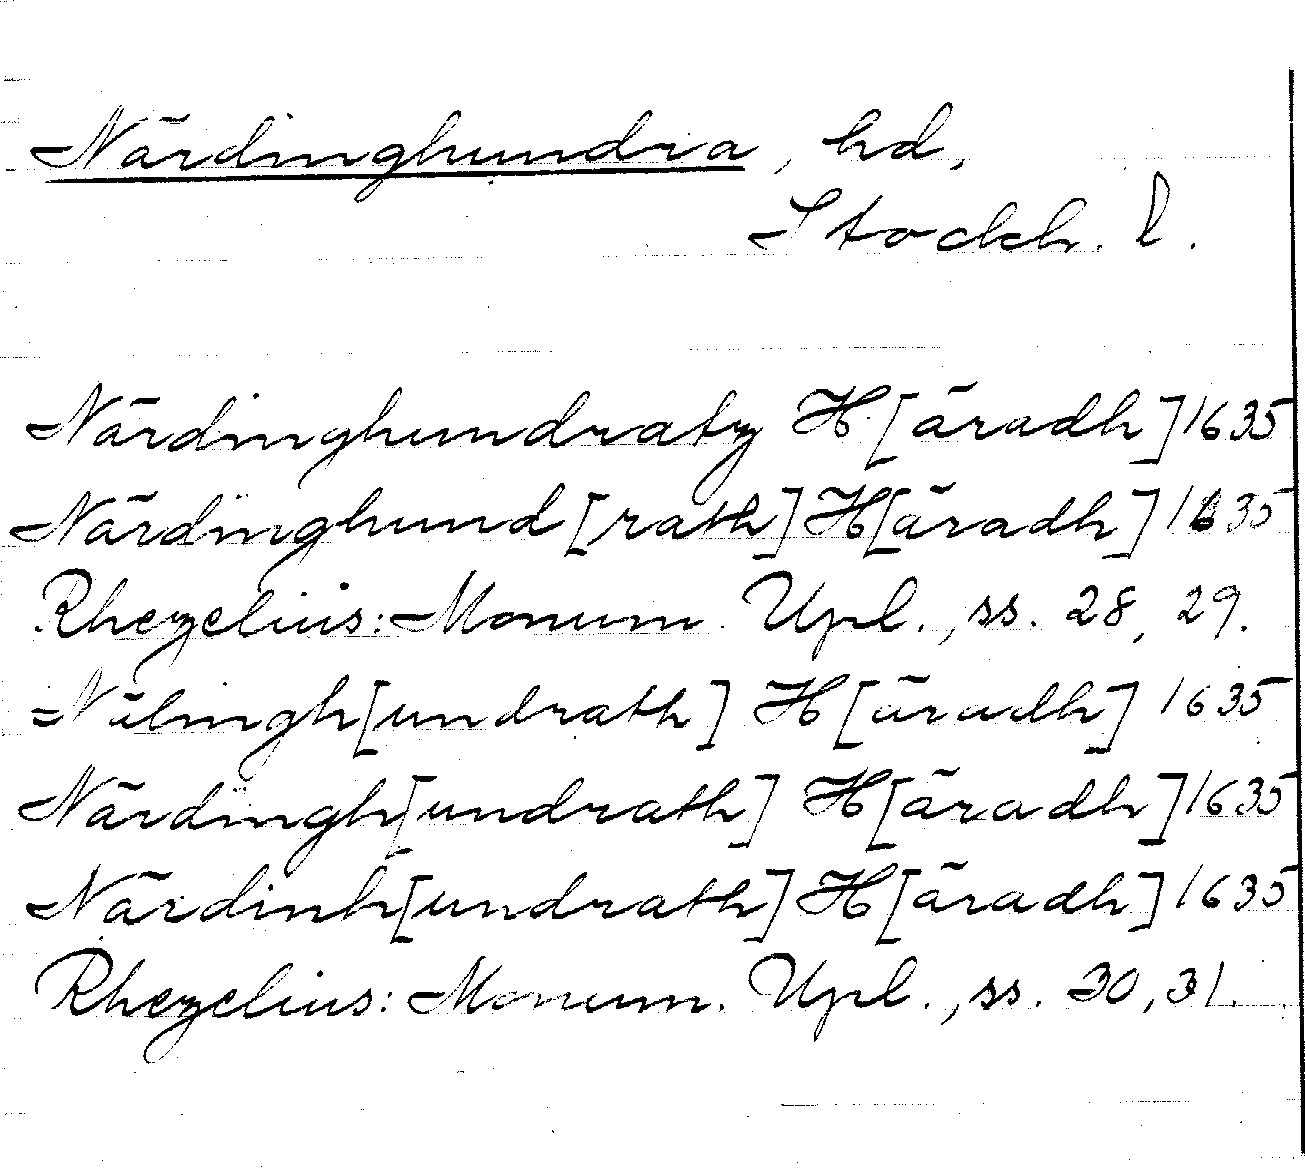 Närdinghundra, hd,
Stockh. l.
Närdinghundratz H[äradh] 1635
Närdinghund[rath] H[äradh] 1635
Rhezelius: Monum. Upl., ss. 28, 29.
=Nälingh[undrath] H[äradh] 1635
Närdingh[undrath] H[äradh] 1635
Närdinh[undrath] H[äradh] 1635
Rhezelius: Monum. Upl., ss. 30, 31.